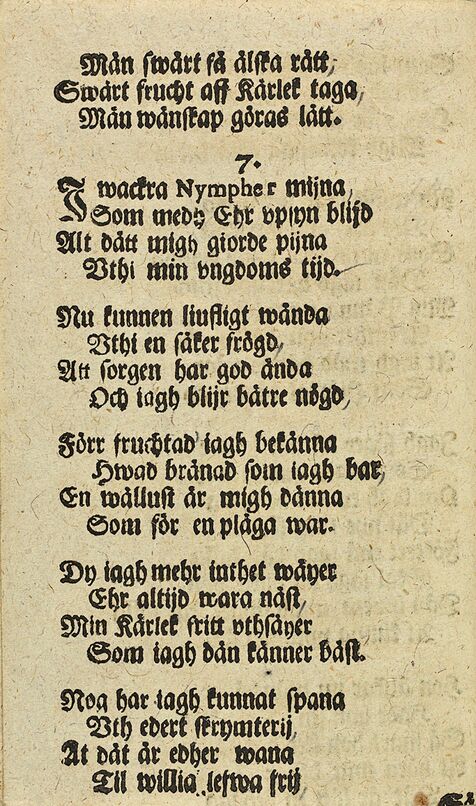 Män swårt få älska rätt,
Swårt frucht aff Kärlek taga,
Män wänskap göras lätt.
7.
I wackra Nympher mijna,
Som medh Ehr vpsyn blijd
Alt dätt migh giorde pijna
Vthi min vngdoms tijd.
Nu kunnen liufligt wända
Vthi en säker frögd,
Att sorgen har god ända
Och iagh blijr bätre nögd,
Förr fruchtad iagh bekänna
Hwad brånad som iagh bar,
En wällust är migh dänna
Som för en plåga war.
Dy iagh mehr inthet wäyer
Ehr altijd wara näst,
Min Kärlek fritt vthsäyer
Som iagh dän känner bäst.
Nog har iagh kunnat spana
Vth edert skrymterij,
At dät är edher wana
Til willia lefwa frij